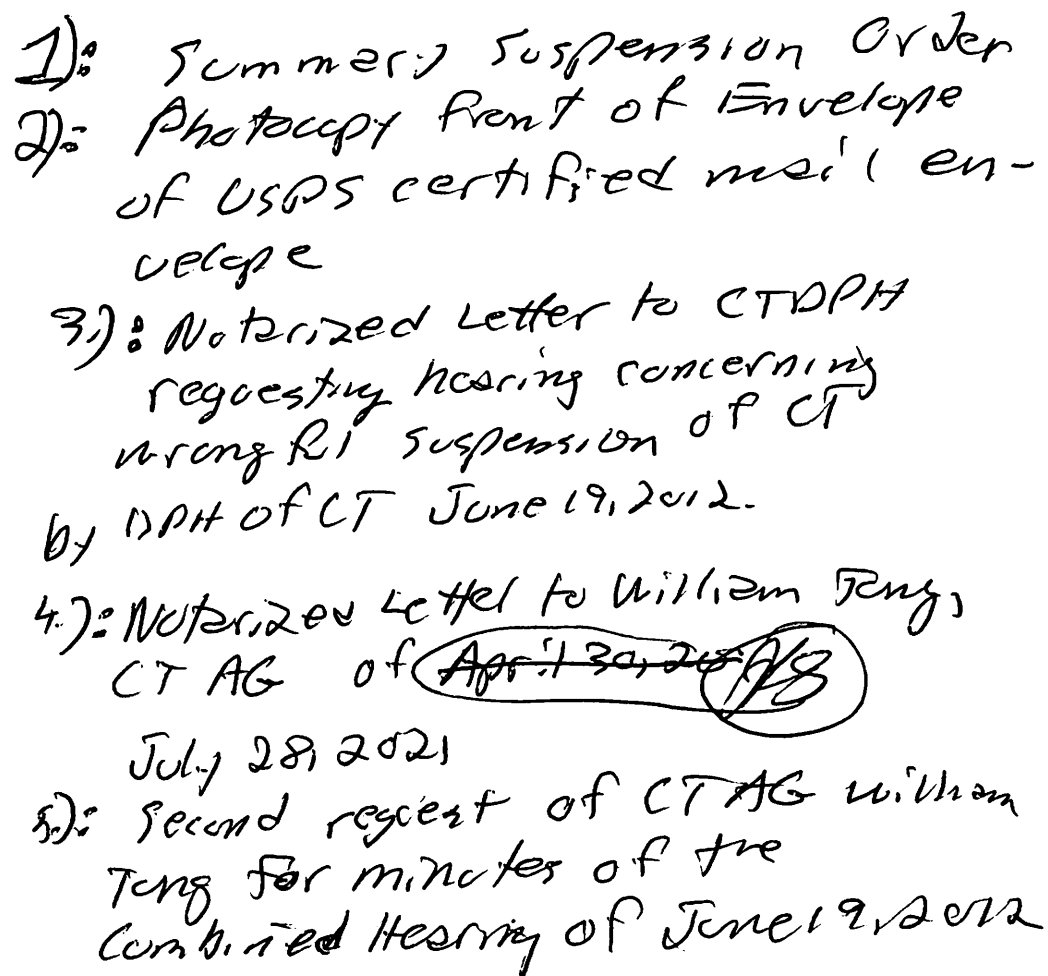 1): Summary Suspension Order
2): Photocopy front of Envelope
of USPS certified mail en-
velope
3.): Notarized Letter to CTDPH
requesting hearing concerning
wrong suspension of CT
by DPH of CT June 19, 2012.
4.): Notarized Letter to William Tong,
CT AG of April 30, 20
July 28, 2021
5.): Second request of CT AG William
Tong for minutes of the
Combined Hearing of June 19, 2012